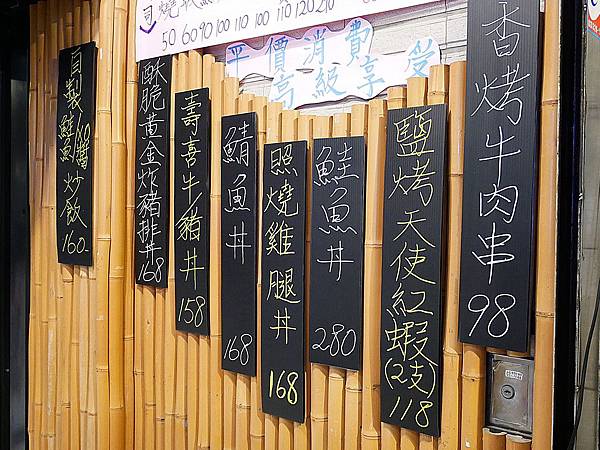 司 燒
50 60 90 100 110 100 110 120 210
平價消費
高級享受
自製鮭魚XO醬炒飯 160
酥脆黃金炸豬排丼 168
壽喜牛/豬丼 158
鯖魚丼 168
照燒雞腿丼 168
鮭魚丼 280
鹽烤天使紅蝦(2支) 118
香烤牛肉串 98